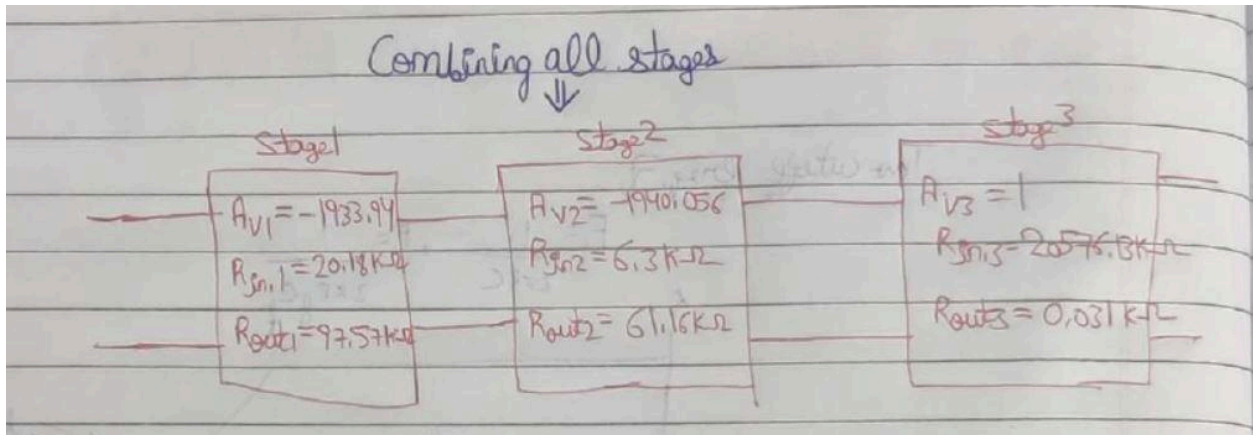 Combining all stages
⇓
Stage1
Stage2
Stage3
AV1 = -1933.94
Rin,1 = 20.18KΩ
Rout1 = 97.57KΩ
AV2 = -1940.056
Rin2 = 6.3KΩ
Rout2 = 61.16KΩ
AV3 = 1
Rin,3 = 20576.13KΩ
Rout3 = 0.031 KΩ